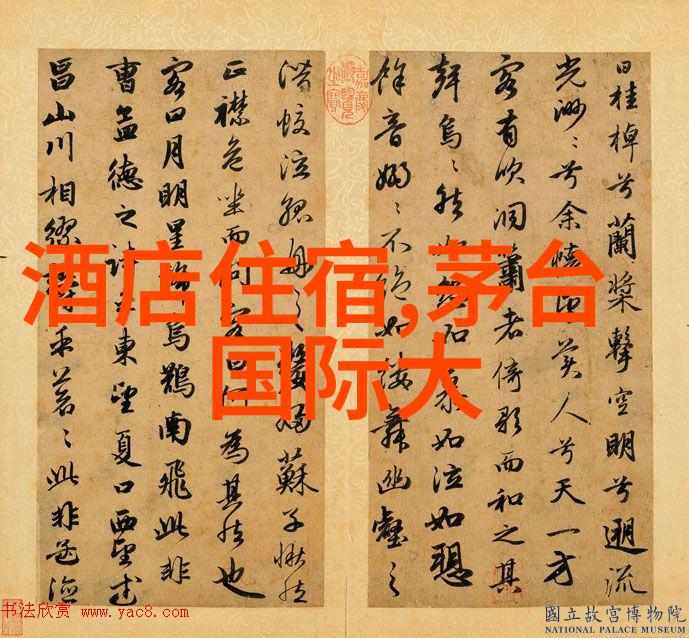 酒店住宿,茅台
国际大
曰桂棹兮蘭槳擊空明兮遡流
光渺〻兮余懷望美人兮天一方
客有吹洞簫者倚歌而和之其
聲烏〻然如怨如慕如泣如愬
餘音嫋〻不絕如縷舞幽壑之
潛蛟泣孤舟之嫠婦蘇子愀然
正襟危坐而問客曰何為其然也
客曰月明星稀烏鵲南飛此非
曹孟德之詩乎東望夏口西望武
昌山川相繆鬱乎蒼〻此非孟德
嘉慶御覽之寶
书法欣赏 www.yac8.com
國立故宮博物院
NATIONAL PALACE MUSEUM